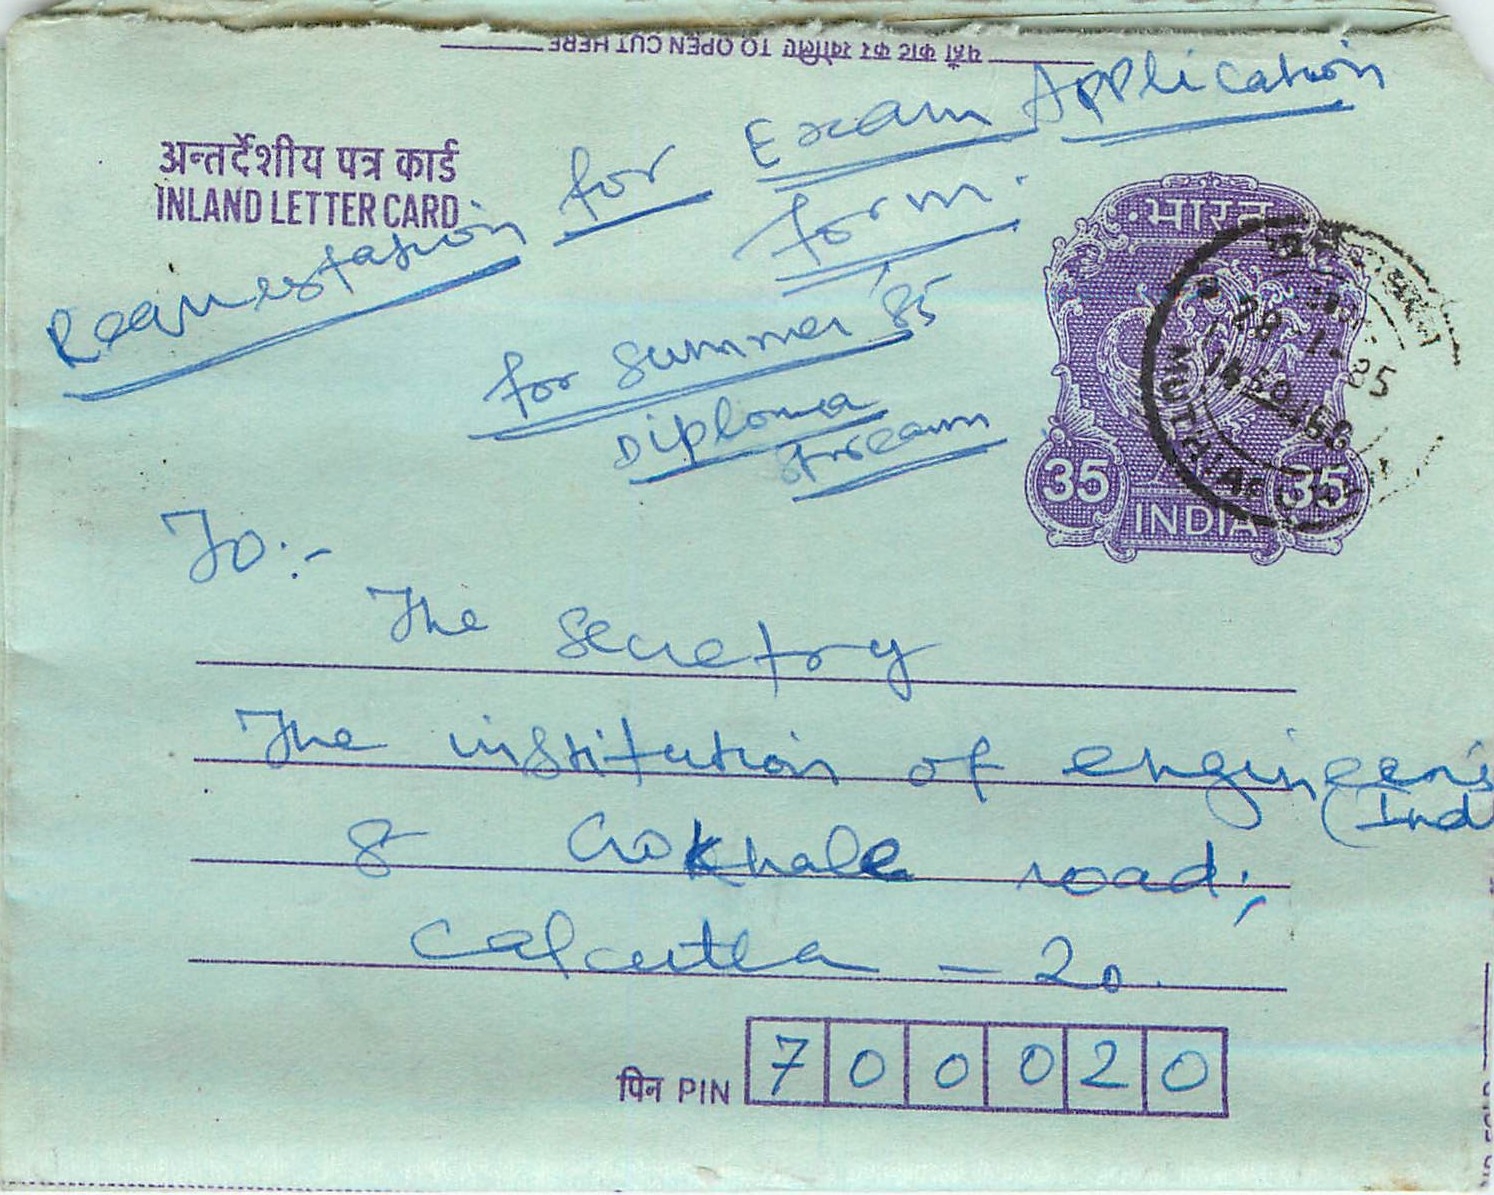 यहाँ काट कर खोलिए TO OPEN CUT HERE
अन्तर्देशीय पत्र कार्ड
INLAND LETTER CARD
Requestation for Exam Application
form.
for Summer 85
Diploma
stream
भारत
35 35
INDIA
To:-
The Secretry
The institution of engineers
(Ind
8 Gokhale road,
Calcutta - 20.
पिन PIN 7 0 0 0 2 0